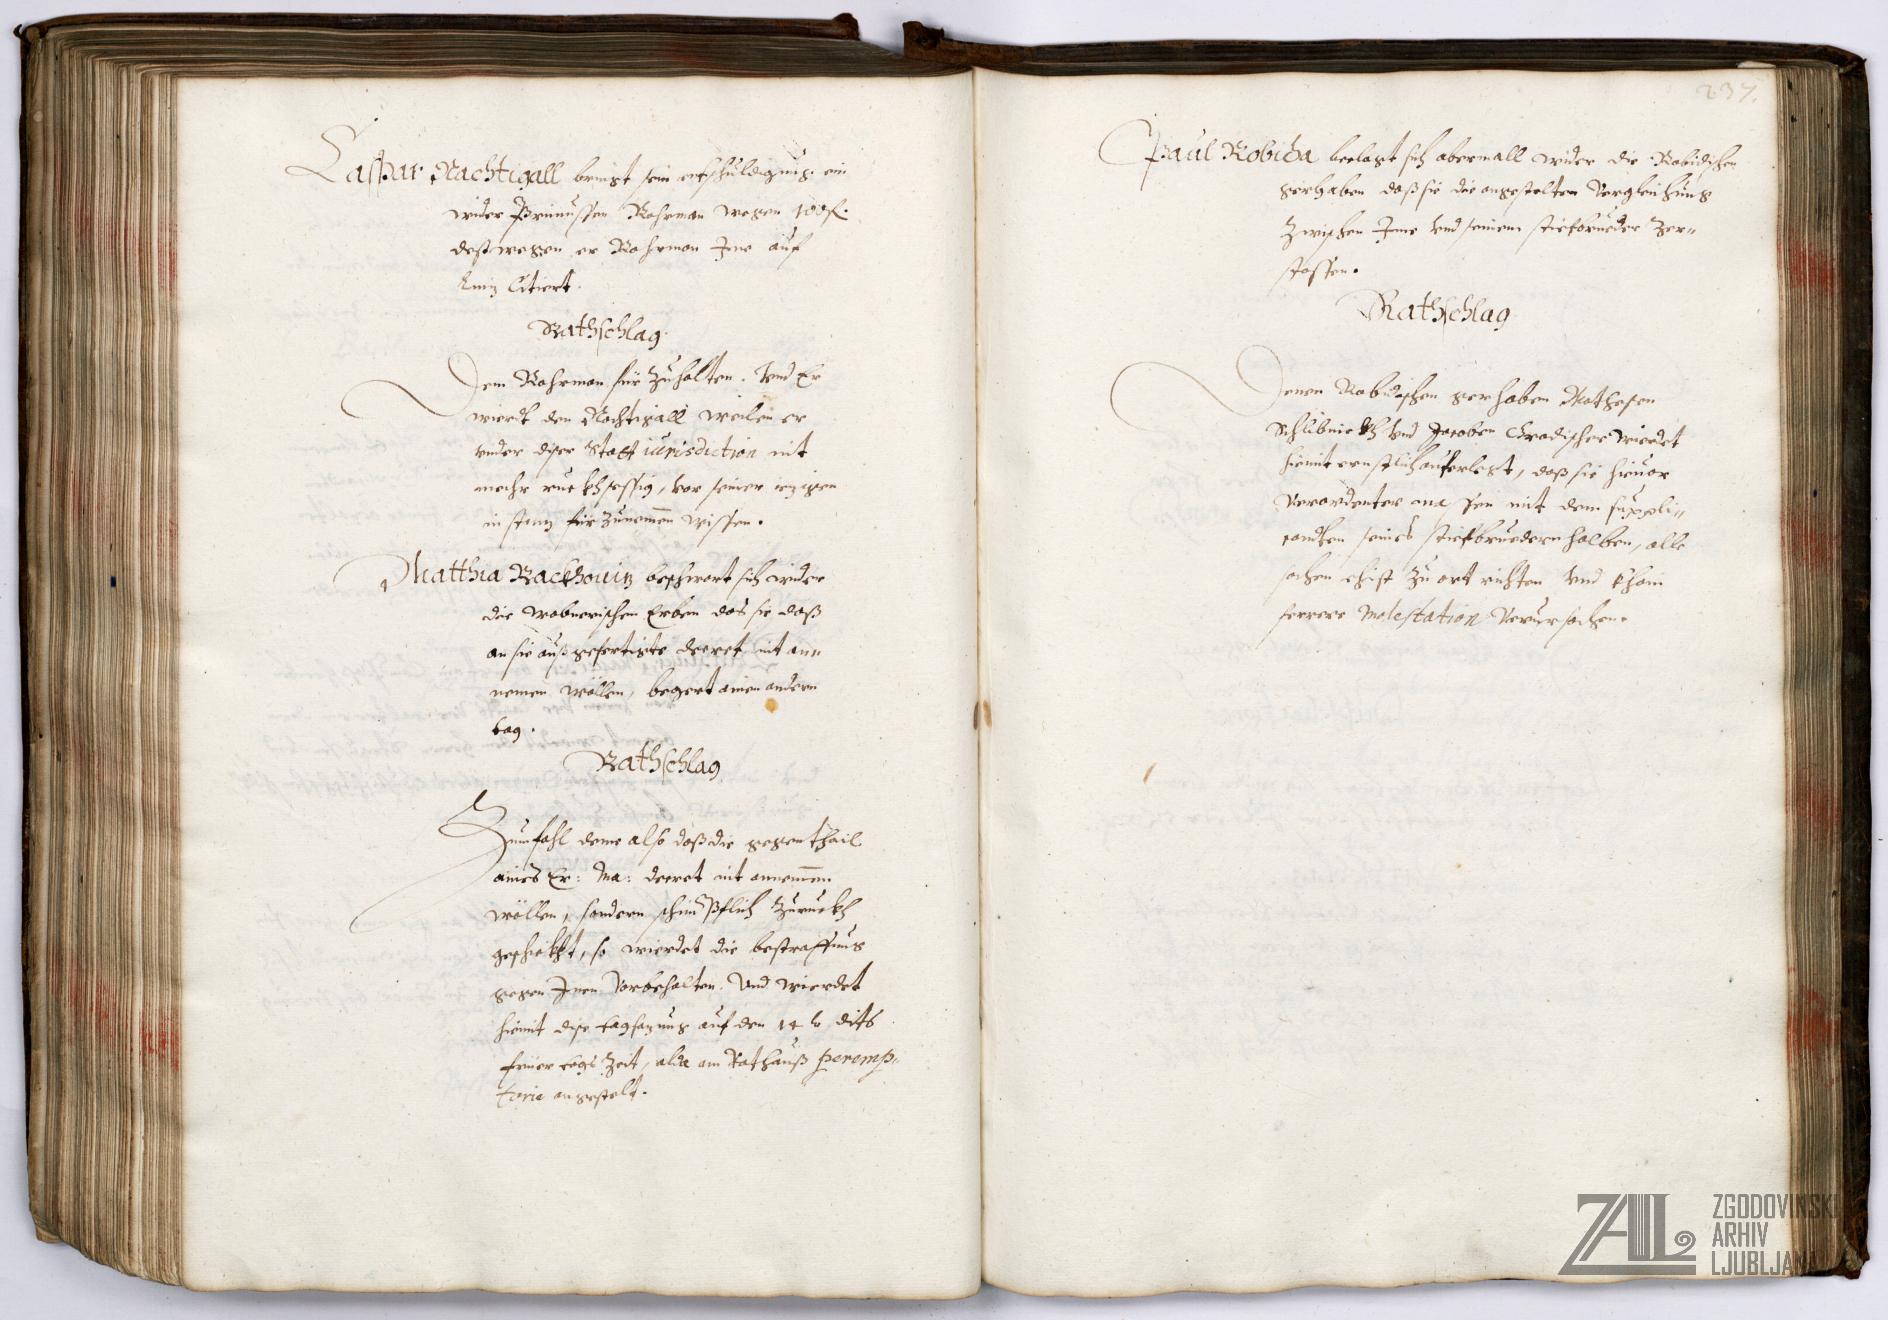 Caspar Nachtigall bringt sein entschuldigung ein
wider Primussen Rohrman wegen 100 f.
desßwegen er Rohrman Ime auf
Citiert.
Rathschlag
Dem Rohrman für Zuhalten. Vnd Er
wierdt den Nachtigall weilen er
vnder diser Statt iurisdiction nit
mehr ruckhsessig, vor seiner iezigen
instanz für Zunemen wissen.
Matthia Rackhouiz beschwärt sich wider
die Wobnerischen Erben das sie daß
an sie außgefertigte decret nit ann
nemen wöllen, begert ainen andern
tag.
Rathschlag
Zumfahl deme also daß die gegenthail
aines Er: Ma: decret nit annemen
wöllen, sondern schimpflich Zuruckh
geschickht, so wierdet die bestraffung
gegen Inen Vorbehalten. Vnd wierdet
hiemit dise tagsazung auf den 14 dits
frier tags Zeit, alda am Rathauß peremp-
torie angestelt.
237.
Paul Robida beclagt sich abermall wider die Robidischen
gerhaben daß sie die angestelten Vergleichung
Zwischen Ime Vnd seinem stiefbrueder Zer=
stossen.
Rathschlag
Denen Robidischen gerhaben Mathesen
Schlibnickh Vnd Jacoben Gradischer wierdet
hiemit ernstlich auferlegt, daß sie hieuor
Verordenter massen mit dem suppli=
canten seines stiefbruedern halben, alle
sachen ehist Zu ort richten Vnd khain
ferrere molestation Verursachen.
ZAL
ZGODOVINSKI
ARHIV
LJUBLJANA